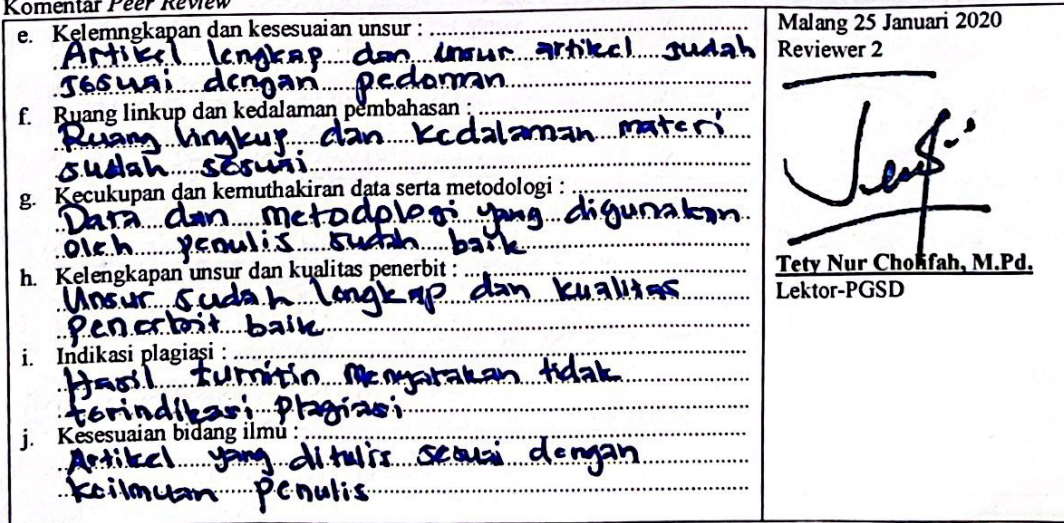 Komentar Peer Review
e. Kelemngkapan dan kesesuaian unsur : ........
Artikel lengkap dan unsur artikel sudah
sesuai dengan pedoman
f. Ruang linkup dan kedalaman pembahasan : ........
Ruang lingkup dan kedalaman materi
sudah sesuai
g. Kecukupan dan kemuthakiran data serta metodologi : ........
Data dan metodologi yang digunakan
oleh penulis sudah baik
h. Kelengkapan unsur dan kualitas penerbit : ........
Unsur sudah lengkap dan kualitas
penerbit baik
i. Indikasi plagiasi : ........
Hasil turnitin menyatakan tidak
terindikasi plagiasi
j. Kesesuaian bidang ilmu : ........
Artikel yang ditulis sesuai dengan
keilmuan penulis
Malang 25 Januari 2020
Reviewer 2
Tety Nur Cholifah, M.Pd.
Lektor-PGSD